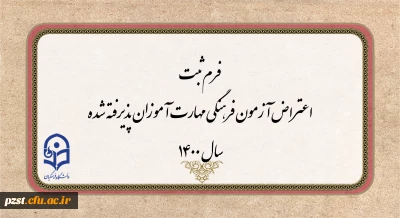 فرم ثبت
اعتراض آزمون فرهنگی مهارت آموزان پذیرفته شده
سال ۱۴۰۰
دانشگاه فرهنگیان
pzst.cfu.ac.ir